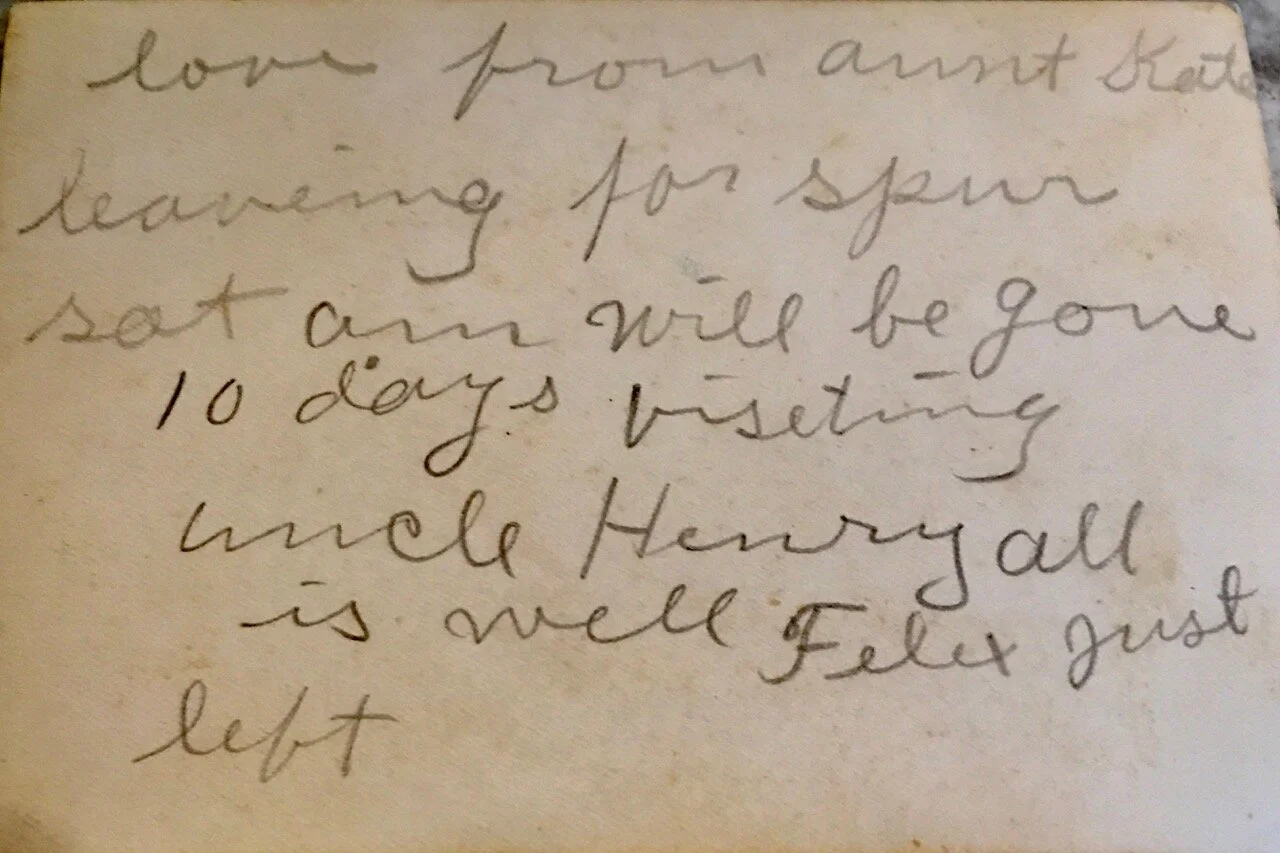 love from aunt Kate
leaveing for spur
sat am will be gone
10 days viseting
uncle Henry all
is well Felix just
left